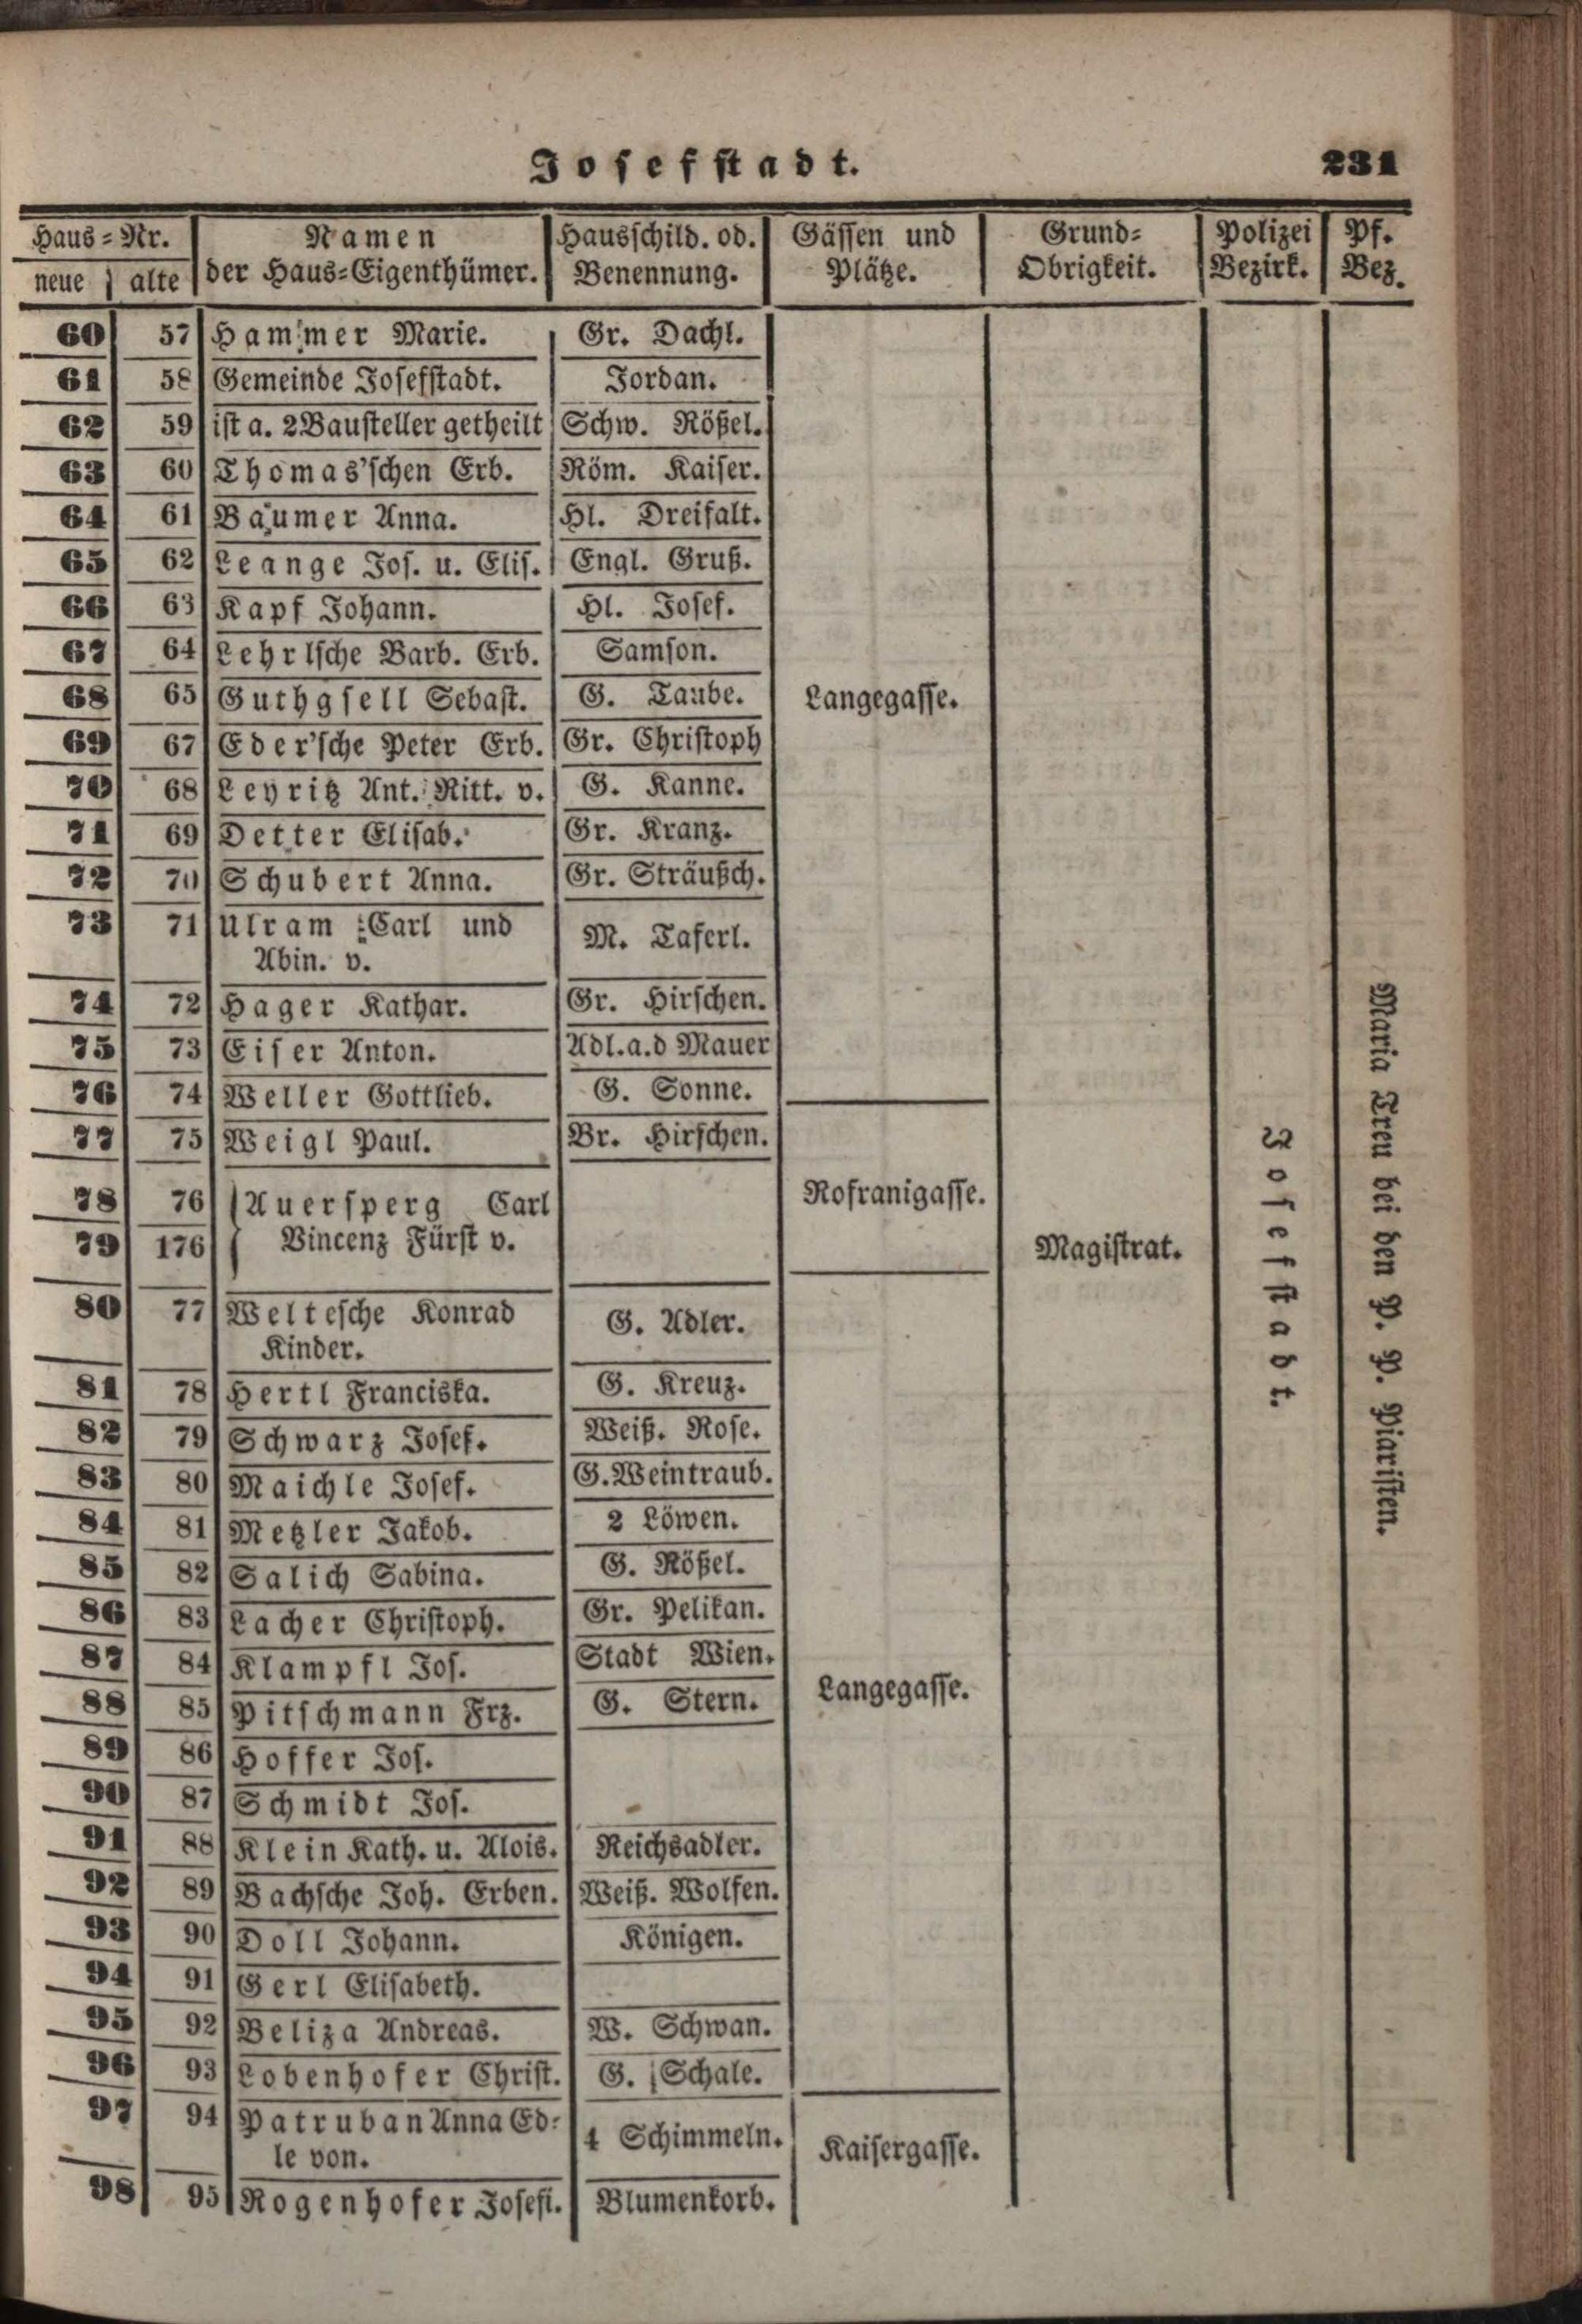 Josefstadt. 231
Haus-Nr. Namen Hausschild. od. Gässen und Grund- Polizei Pf.
neue alte der Haus-Eigenthümer. Benennung. Plätze. Obrigkeit. Bezirk. Bez.
60 57 Hammer Marie. Gr. Dachl.
61 58 Gemeinde Josefstadt. Jordan.
62 59 ist a. 2 Baustellen getheilt Schw. Rößel.
63 60 Thomas'schen Erb. Röm. Kaiser.
64 61 Baumer Anna. Hl. Dreifalt.
65 62 Leange Jos. u. Elis. Engl. Gruß.
66 63 Kapf Johann. Hl. Josef.
67 64 Lehrlsche Barb. Erb. Samson.
68 65 Guthgsell Sebast. G. Taube. Langegasse.
69 67 Eder'sche Peter Erb. Gr. Christoph
70 68 Leyritz Ant. Ritt. v. G. Kanne.
71 69 Detter Elisab. Gr. Kranz.
72 70 Schubert Anna. Gr. Sträußch.
73 71 Ulram Carl und
Abin. v. M. Taferl.
74 72 Hager Kathar. Gr. Hirschen.
75 73 Eiser Anton. Adl.a.d Mauer
76 74 Weller Gottlieb. G. Sonne.
77 75 Weigl Paul. Br. Hirschen.
78 76 Auersperg Carl Rofranigasse.
79 176 Vincenz Fürst v. Magistrat.
80 77 Weltesche Konrad
Kinder. G. Adler.
81 78 Hertl Franciska. G. Kreuz.
82 79 Schwarz Josef. Weiß. Rose.
83 80 Maichle Josef. G. Weintraub.
84 81 Metzler Jakob. 2 Löwen.
85 82 Salich Sabina. G. Rößel.
86 83 Lacher Christoph. Gr. Pelikan.
87 84 Klampfl Jos. Stadt Wien.
88 85 Pitschmann Frz. G. Stern. Langegasse.
89 86 Hoffer Jos.
90 87 Schmidt Jos.
91 88 Klein Kath. u. Alois. Reichsadler.
92 89 Bachsche Joh. Erben. Weiß. Wolfen.
93 90 Doll Johann. Königen.
94 91 Gerl Elisabeth.
95 92 Beliza Andreas. W. Schwan.
96 93 Lobenhofer Christ. G. Schale.
97 94 Patruban Anna Ed-
le von. 4 Schimmeln. Kaisergasse.
98 95 Rogenhofer Josefi. Blumenkorb.
Josefstadt.
Maria Treu bei den P. P. Piaristen.